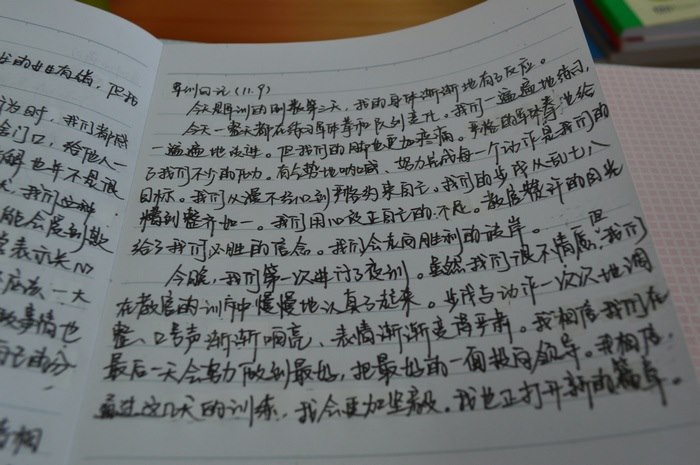 军训日记(11.9)
今天是军训的倒数第二天，我的身体渐渐地有了反应。
今天一整天都在练习军体拳和队列变化。我们一遍遍地练习，
一遍遍地改进。但我们的脚也更加疼痛。英语的军体拳也给
了我们不少的压力。有气势地呐喊、努力完成每一个动作是我们的
目标。我们从漫不经心到严格约束自己。我们的步伐从乱七八
糟到整齐如一。我们用心改正自己的不足。教官赞许的目光
给了我们必胜的信念。我们会走向胜利的彼岸。
今晚，我们第一次进行了夜训。虽然我们很不情愿，但我们
在教官的训斥中慢慢地认真了起来。步伐与动作一次次地调
整、口号声渐渐响亮、表情渐渐变得严肃。我相信我们在
最后一天会努力做到最好，把最好的一面投向领导。我相信，
通过这几天的训练，我会更加坚毅。我也正打开新的篇章。
的有错，但我
当时，我们都感
门口，给他人一
也并不是很
我们这种
能会受到欺
表示长心
应该一大
事情也
自己的分
相